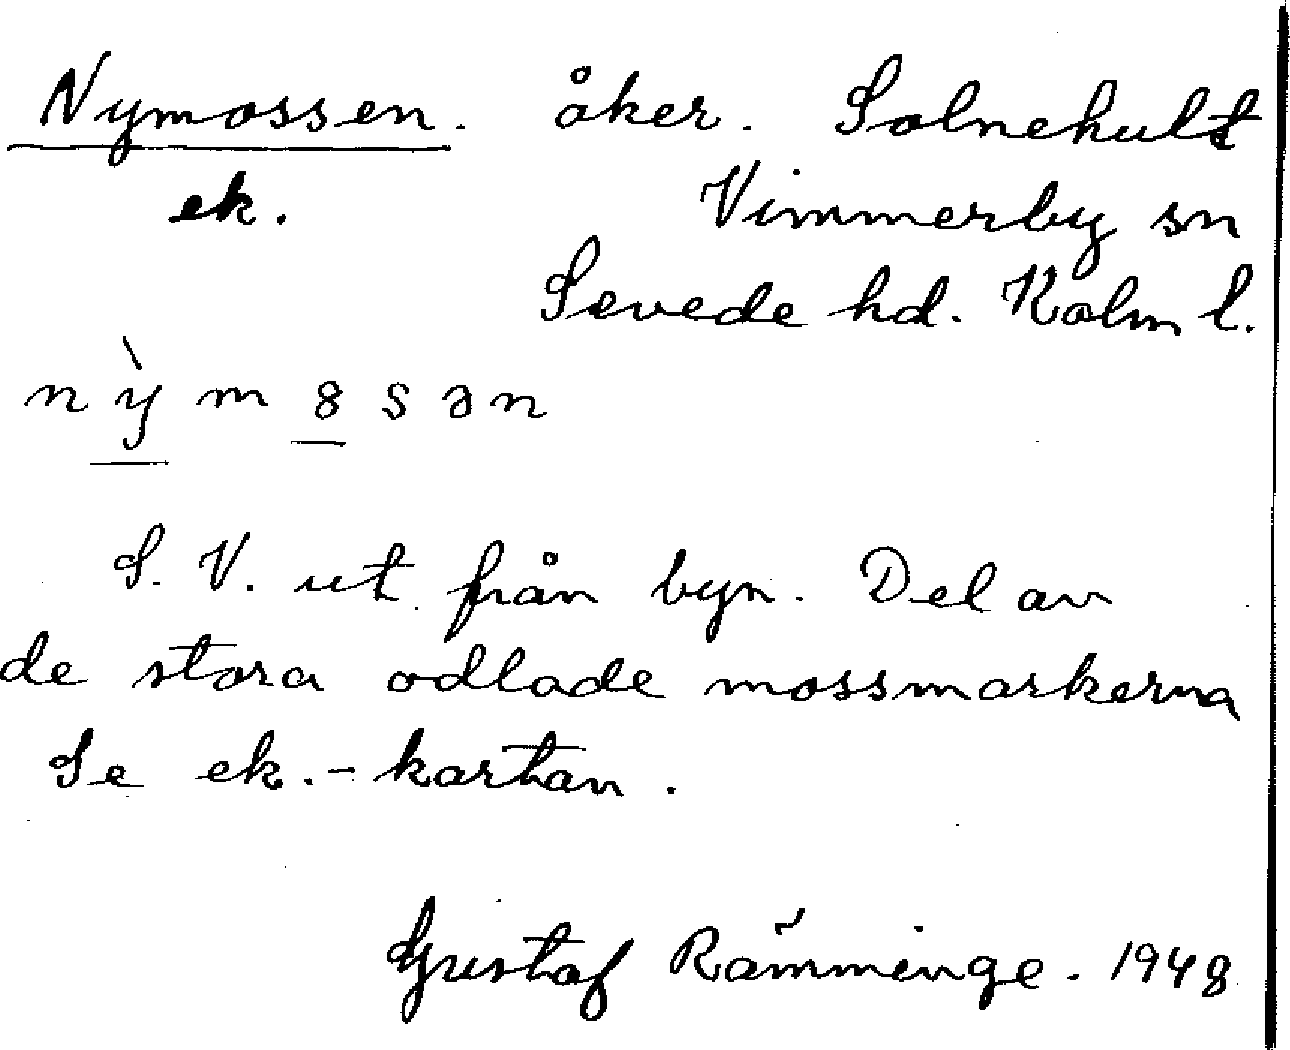 Nymossen. åker. Solnehult
ek. Vimmerby sn
Sevede hd. Kalm l.
nỳm8sən
S. V. ut från byn. Del av
de stora odlade mossmarkerna
Se ek.-kartan.
Gustaf Rämminge. 1948